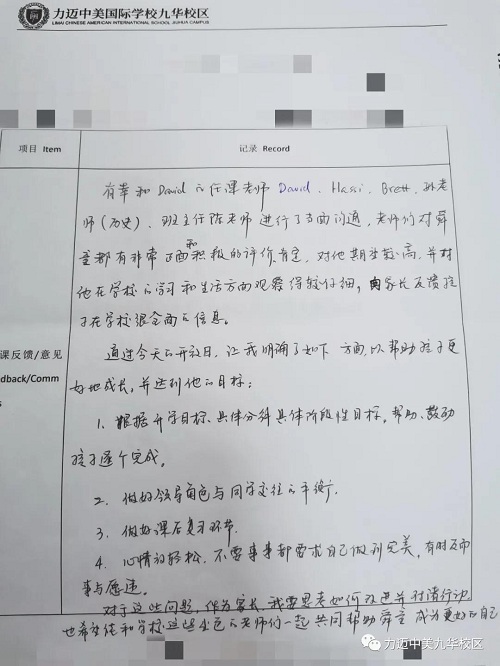 力迈中美国际学校九华校区
LIMAI CHINESE AMERICAN INTERNATIONAL SCHOOL JIUHUA CAMPUS
项目 Item
记录 Record
有幸和David的任课老师David、Hassi、Brett、孙老
师(历史)、班主任陈老师进行了当面沟通,老师们对舜
童都有非常正面和积极的评价肯定,对他期望较高,并对
他在学校的学习和生活方面观察得较仔细,向家长反馈孩
子在学校很全面的信息。
通过今天的开放日,让我明确了如下方面,以帮助孩子更
好地成长,并达到他的目标:
课反馈/意见
dback/Comm
s
1、根据升学目标、具体分科具体阶段性目标,帮助、鼓励
孩子逐个完成。
2、做好领导角色与同学交往的平衡,
3、做好课后复习环节。
4、心情放轻松,不要事事都要求自己做到完美,有时反而
事与愿违。
对于这些问题,作为家长,我要思考如何改进并付诸行动
也希望能和学校这些出色的老师们一起共同帮助舜童成为更好的自己
力迈中美九华校区